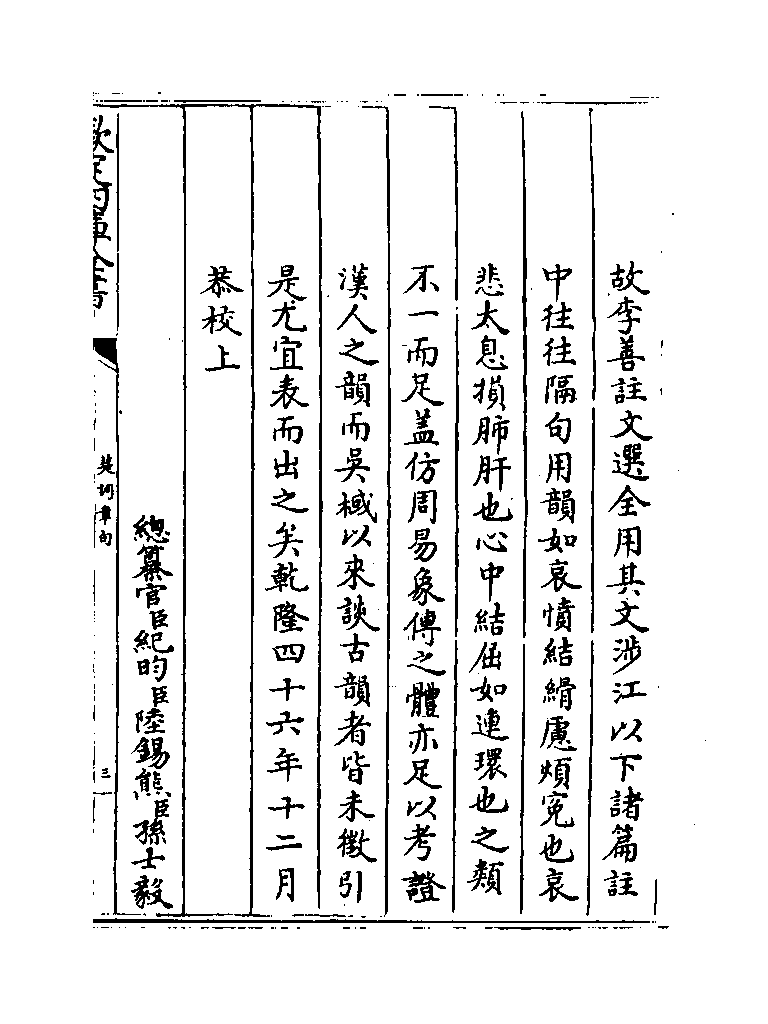 故李善註文選全用其文渉江以下諸篇註
中往往隔句用韻如哀憤結縎慮煩寃也哀
悲太息損肺肝也心中結屈如連環也之類
不一而足蓋仿周易象傳之體亦足以考證
漢人之韻而吳棫以來談古韻者皆未徵引
是尤宜表而出之矣乾隆四十六年十二月
恭校上
總纂官臣紀昀臣陸錫熊臣孫士毅
欽定四庫全書
楚詞章句
三